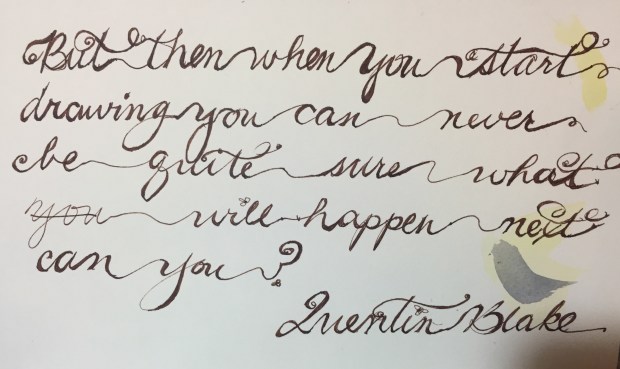 But then when you start
drawing you can never
be quite sure what
you will happen next
can you?
Quentin Blake